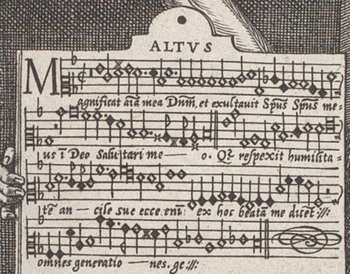 ALTVS
Magnificat aīa mea Dnm, et exultauit Spūs Spūs me-
us ī Deo Salutari me - o. Qz respexit humilita-
tē an - cile sue ecce enī ex hoc beatā me dicēt :/:
omnes generatio - nes. ge :/: